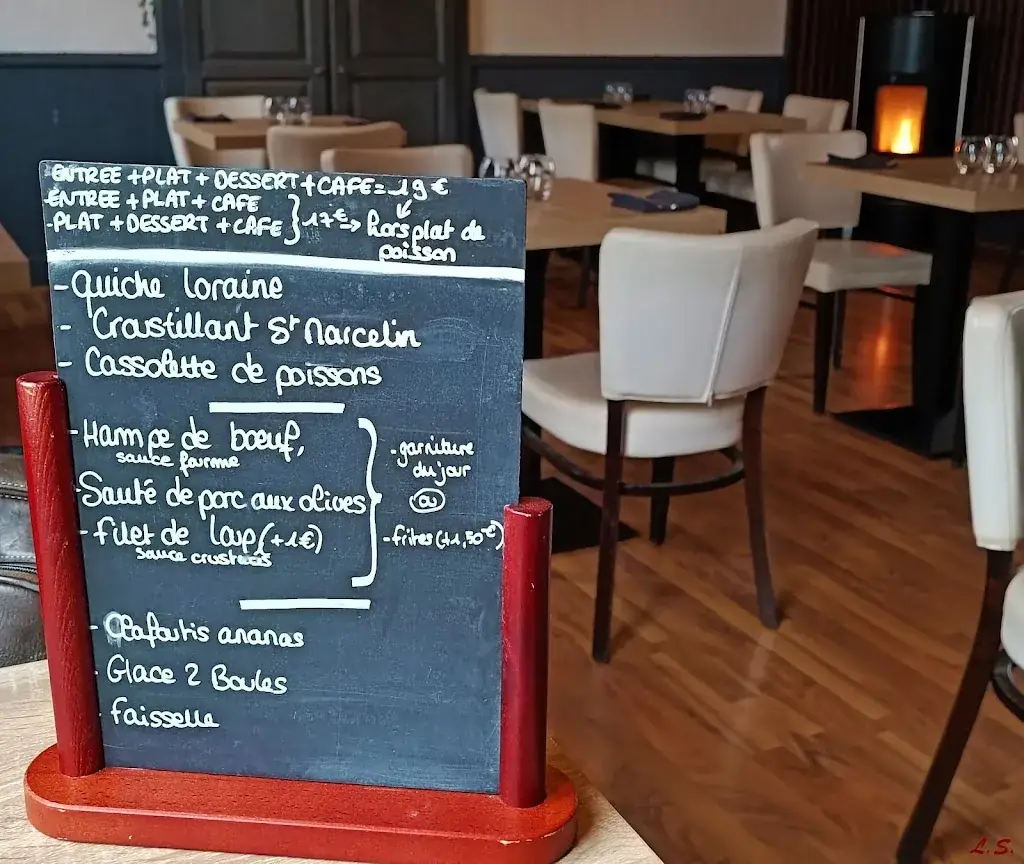 ENTREE + PLAT + DESSERT + CAFE = 19 €
- ENTREE + PLAT + CAFE
- PLAT + DESSERT + CAFE } 17 € → hors plat de
poisson
- Quiche loraine
- Croustillant St Marcelin
- Cassolette de poissons
- Hampe de bœuf,
sauce fourme
- Sauté de porc aux olives
- filet de loup (+1€)
sauce crustacés
- garniture
du jour
ou
- frites (+1,50€)
- Clafoutis ananas
- Glace 2 Boules
- faisselle
L.S.